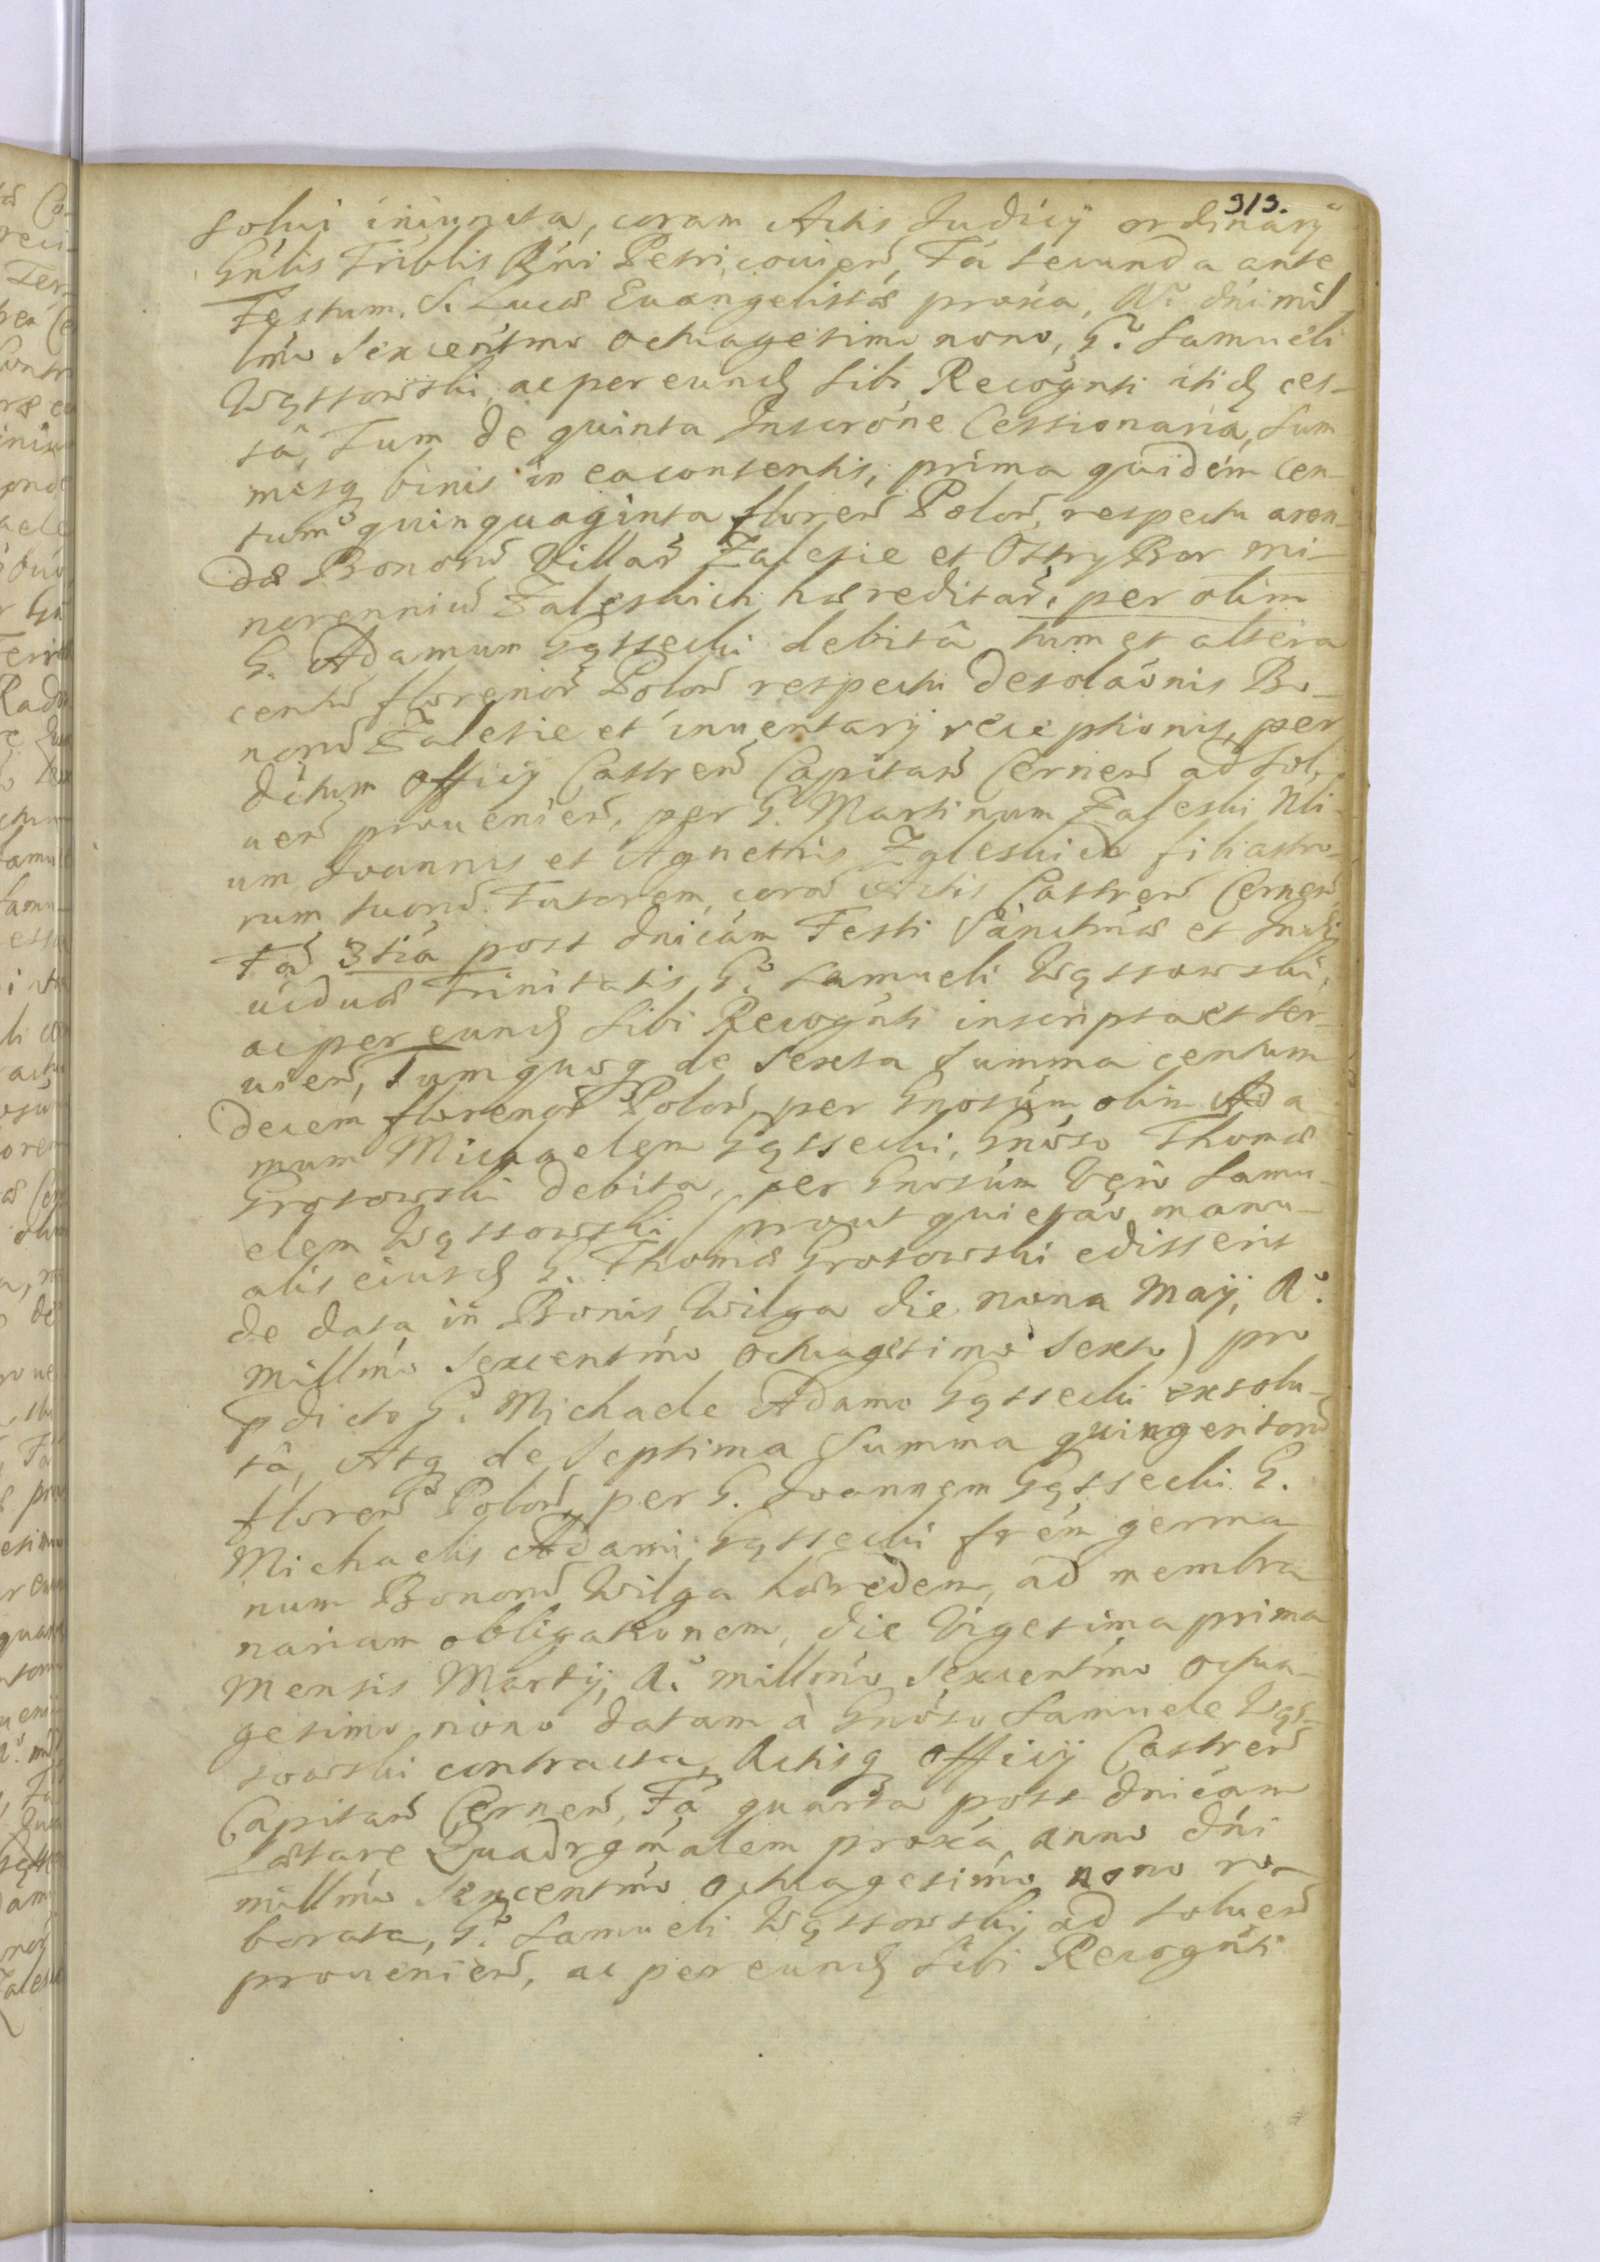 313.
solui iniuncta, coram Actis Judicÿ ordinarÿ
Gnlis Triblis Rgni Petricouien, Fa secunda ante
Festum S. Lucæ Euangelistæ proxa, Ao dni mil
lmo sexcentmo octuagesimo nono, Go Samueli
Wąssowski, ac per eund sibi Recognti itid ces-
sa, Tum de quinta Inscrone Cessionaria, Sum
misq binis in ea contentis, prima quidem cen-
tum quinquaginta floren Polon, respectu aren-
dæ Bonoru Villar Zalesie et Ostry Bor mi-
norenniu Zaleskich hæreditar, per olim
G. Adamum Gąssecki debita tum et altera
centu florenor Polon respectu desolaonis Bo-
noru Zalesie et inuentarÿ receptionis, per
dictum Officÿ Castren Capitan Cernen ad sol-
uen prouenien, per G. Martinum Zaleski Nli-
um Joannis et Agnethis Zaleskich filiastro-
rum suoru Tutorem, cora Actis Castren Cernen,
Fa 3tia post dnicam Festi Sanctmæ et Indi
uiduæ Trinitatis, Go Samueli Wąssowski,
ac per eund sibi Recognti inscripta et ser-
uien, Tum quoq de Sexta Summa centum
decem florenor Polon, per Gnosum olim Ada-
mum Michaelem Gąssecki, Gnoso Thomæ
Grosowski debita, per Gnosum vero Samu-
elem Wąssowski (prout quietao manu-
alis eiusd G. Thomæ Grosowski edisserit
de data in Bonis Wilga die nona Maÿ, Ao
millmo Sexcentmo octuagesimo Sexto) pro
pdicto Go Michaele Adamo Gąssecki exsolu-
ta, Atq de Septima Summa quingentoru
floren Polon, per G. Joannem Gąssecki G.
Michaelis Adami Gąssecki frem germa-
num Bonoru Wilga hæredem, ad membra
nariam obligationem, die Vigesima prima
Mensis Martÿ, Ao millmo Sexcentmo octua-
gesimo nono datam à Gnoso Samuele Wąs-
sowski contracta, Actisq Officÿ Castren
Capitan Cernen, Fa quarta post dnicam
Lætare Quadrgmalem proxa, anno dni
millmo Sexcentmo octuagesimo nono ro-
borata, Go Samueli Wąssowskÿ ad soluen
prouenien, ac per eund sibi Recognti